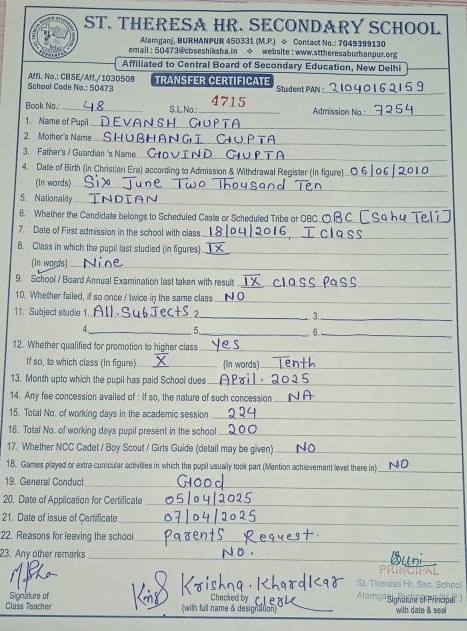 ST. THERESA HR. SECONDARY SCHOOL
Alamganj, BURHANPUR 450331 (M.P.) ❖ Contact No.: 7049399130
email : 50473@cbseshiksha.in ❖ website : www.sttheresaburhanpur.org
Affiliated to Central Board of Secondary Education, New Delhi
Affi. No.: CBSE/Aft./1030508
TRANSFER CERTIFICATE
School Code No.: 50473 Student PAN : 21040162159
Book No.: 48 S.L.No.: 4715 Admission No.: 7254
1. Name of Pupil DEVANSH GUPTA
2. Mother's Name SHUBHANGI GUPTA
3. Father's / Guardian 's Name GOVIND GUPTA
4. Date of Birth (in Christian Era) according to Admission & Withdrawal Register (In figure) 06/06/2010
(In words) Six June Two Thousand Ten
5. Nationality INDIAN
6. Whether the Candidate belongs to Scheduled Caste or Scheduled Tribe or OBC OBC [Sahu Teli]
7. Date of First admission in the school with class 18/04/2016, I class
8. Class in which the pupil last studied (in figures) IX
(In words) Nine
9. School / Board Annual Examination last taken with result IX class Pass
10. Whether failed, if so once / twice in the same class NO
11. Subject studie 1. All. Subjects 2. 3.
4. 5. 6.
12. Whether qualified for promotion to higher class Yes
If so, to which class (In figure) X (In words) Tenth
13. Month upto which the pupil has paid School dues April. 2025
14. Any fee concession availed of : If so, the nature of such concession NA
15. Total No. of working days in the academic session 224
16. Total No. of working days pupil present in the school 200
17. Whether NCC Cadet / Boy Scout / Girls Guide (detail may be given) NO
18. Games played or extra-curricular activities in which the pupil usually took part (Mention achievement level there in) NO
19. General Conduct Good
20. Date of Application for Certificate 05/04/2025
21. Date of issue of Certificate 07/04/2025
22. Reasons for leaving the school Parents Request.
23. Any other remarks NO.
PRINCIPAL
St. Theresa Hr. Sec. School
Krishna. Khardkar
Signature of
Class Teacher
Checked by Clerk
(with full name & designation)
Signature of Principal
with date & seal